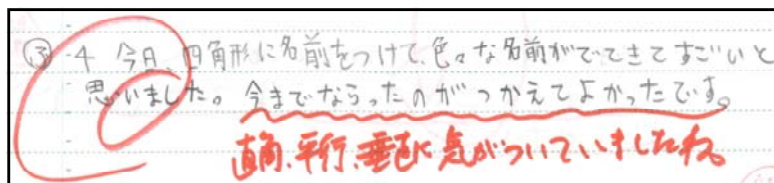 ③-4 今日、四角形に名前をつけて、色々な名前がでてきてすごいと
思いました。今までならったのがつかえてよかったです。
直角、平行、垂直に気がついていましたね。